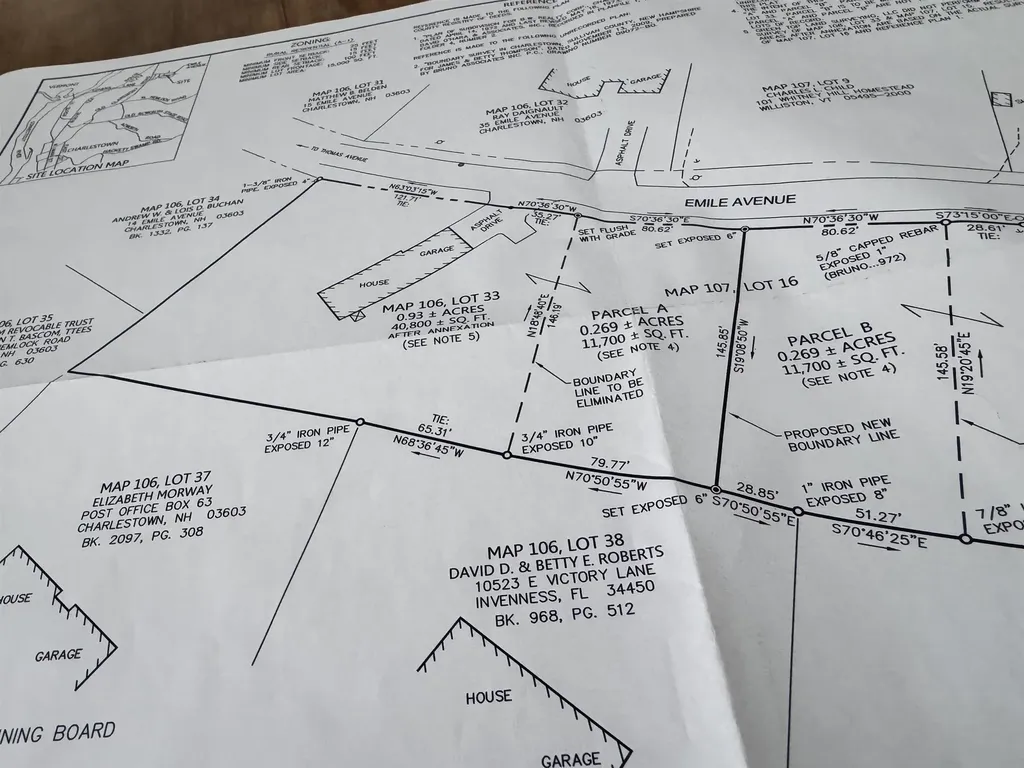 ZONING
RURAL RESIDENTIAL (A-1)
MINIMUM LOT AREA: 15,000 SQ. FT.
REFERENCE IS MADE TO THE FOLLOWING
REFERENCE IS MADE TO THE FOLLOWING UNRECORDED PLAN:
2. "BOUNDARY SURVEY IN CHARLESTOWN, SULLIVAN COUNTY, NEW HAMPSHIRE
FOR JAMES & BETTY THOMPSON"
BY BRUNO ASSOCIATES INC. P.C.
VERMONT
SITE
CHARLESTOWN
SITE LOCATION MAP
MAP 106, LOT 31
MATTHEW B. BELDEN
15 EMILE AVENUE
CHARLESTOWN, NH 03603
HOUSE
GARAGE
MAP 106, LOT 32
RAY DAIGNAULT
35 EMILE AVENUE
CHARLESTOWN, NH 03603
MAP 107, LOT 9
CHARLES L. CHILD
101 WHITNEY HILL HOMESTEAD
WILLISTON, VT 05495-2000
ASPHALT DRIVE
TO THOMAS AVENUE
1-3/8" IRON
PIPE, EXPOSED 4"
N63°03'15"W
121.71'
TIE:
EMILE AVENUE
MAP 106, LOT 34
ANDREW W. & LOIS D. BUCHAN
14 EMILE AVENUE
CHARLESTOWN, NH 03603
BK. 1332, PG. 137
ASPHALT
DRIVE
N70°36'30"W
35.27'
TIE:
SET FLUSH
WITH GRADE
S70°36'30"E
80.62'
SET EXPOSED 6"
N70°36'30"W
80.62'
S73°15'00"E
28.61'
TIE:
5/8" CAPPED REBAR
EXPOSED 1"
(BRUNO...972)
GARAGE
HOUSE
MAP 106, LOT 33
0.93 ± ACRES
40,800 ± SQ. FT.
AFTER ANNEXATION
(SEE NOTE 5)
N18°48'40"E
146.19'
MAP 107, LOT 16
PARCEL A
0.269 ± ACRES
11,700 ± SQ. FT.
(SEE NOTE 4)
145.85'
S19°08'50"W
PARCEL B
0.269 ± ACRES
11,700 ± SQ. FT.
(SEE NOTE 4)
145.58'
N19°20'45"E
06, LOT 35
REVOCABLE TRUST
T. BASCOM, TTEES
EMLOCK ROAD
NH 03603
G. 630
BOUNDARY
LINE TO BE
ELIMINATED
PROPOSED NEW
BOUNDARY LINE
3/4" IRON PIPE
EXPOSED 12"
TIE:
65.31'
N68°36'45"W
3/4" IRON PIPE
EXPOSED 10"
79.77'
N70°50'55"W
SET EXPOSED 6"
28.85'
S70°50'55"E
1" IRON PIPE
EXPOSED 8"
51.27'
S70°46'25"E
7/8"
EXPO
MAP 106, LOT 37
ELIZABETH MORWAY
POST OFFICE BOX 63
CHARLESTOWN, NH 03603
BK. 2097, PG. 308
MAP 106, LOT 38
DAVID D. & BETTY E. ROBERTS
10523 E VICTORY LANE
INVENNESS, FL 34450
BK. 968, PG. 512
HOUSE
GARAGE
HOUSE
GARAGE
NING BOARD